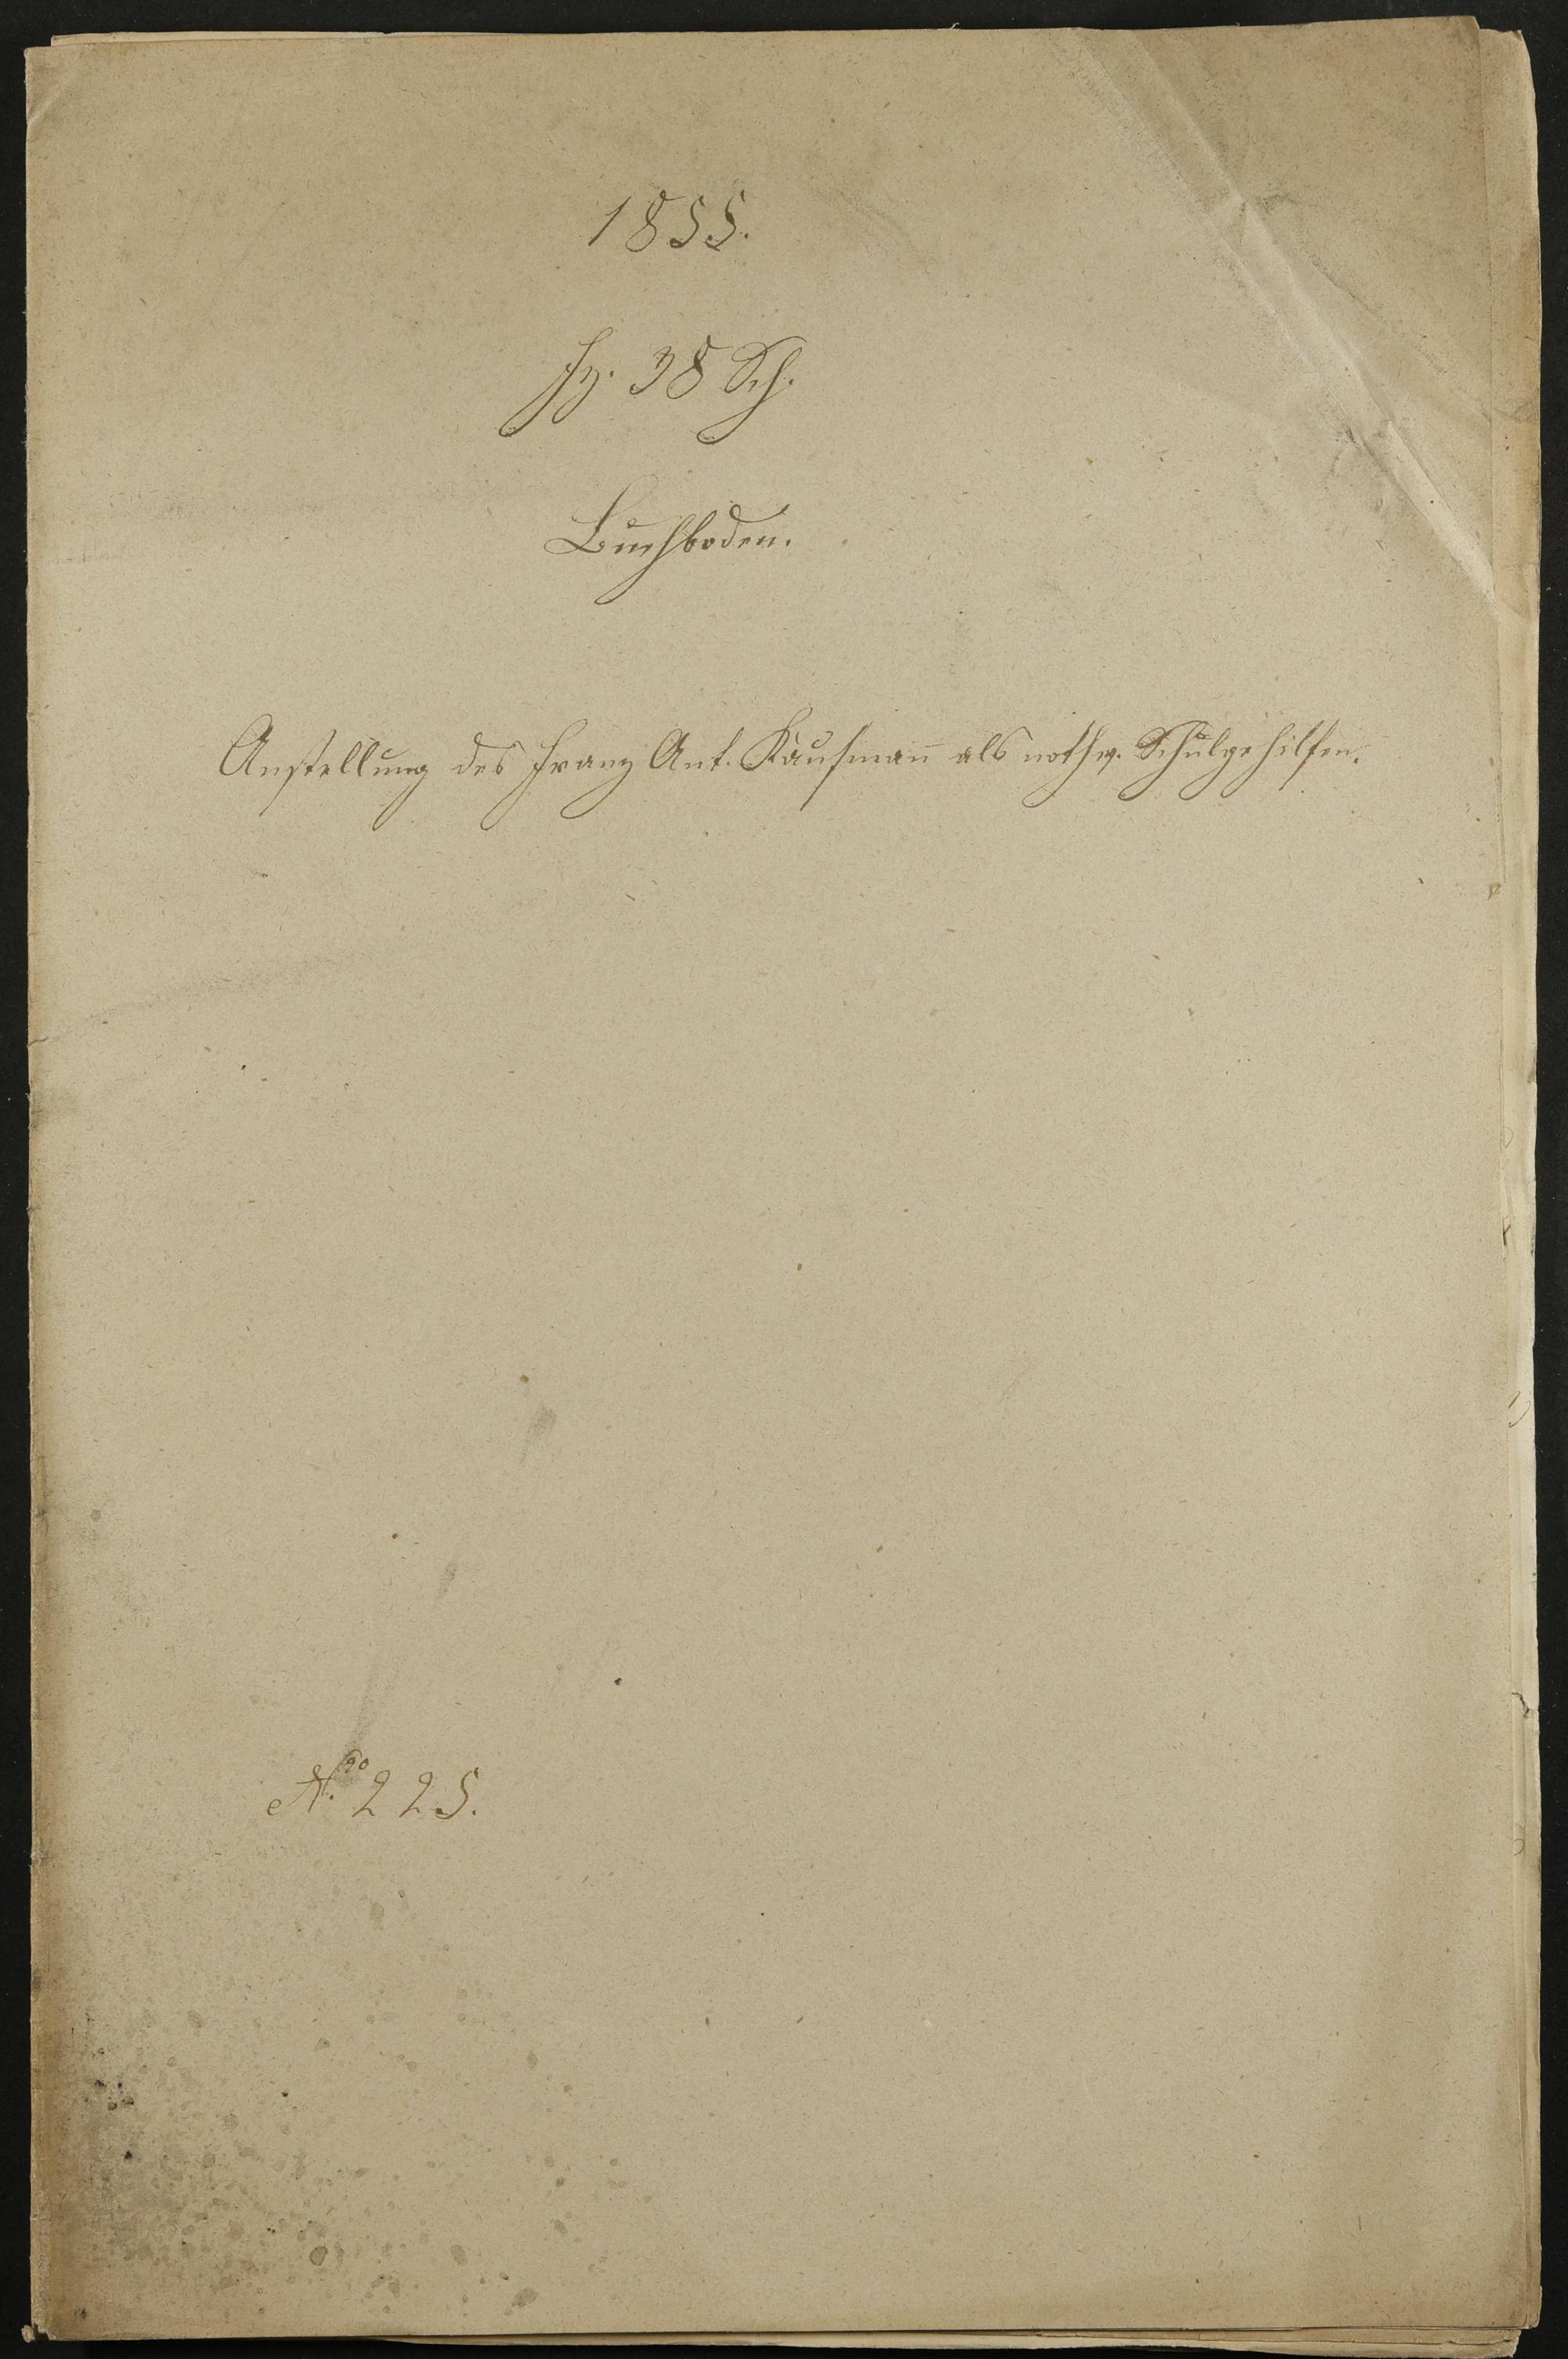 1855.
Fz. 38 Sch.
Buchboden.
Anstellung des Franz Ant. Kaufman̄ als nothw. Schulgehilfen.
N.ro 225.